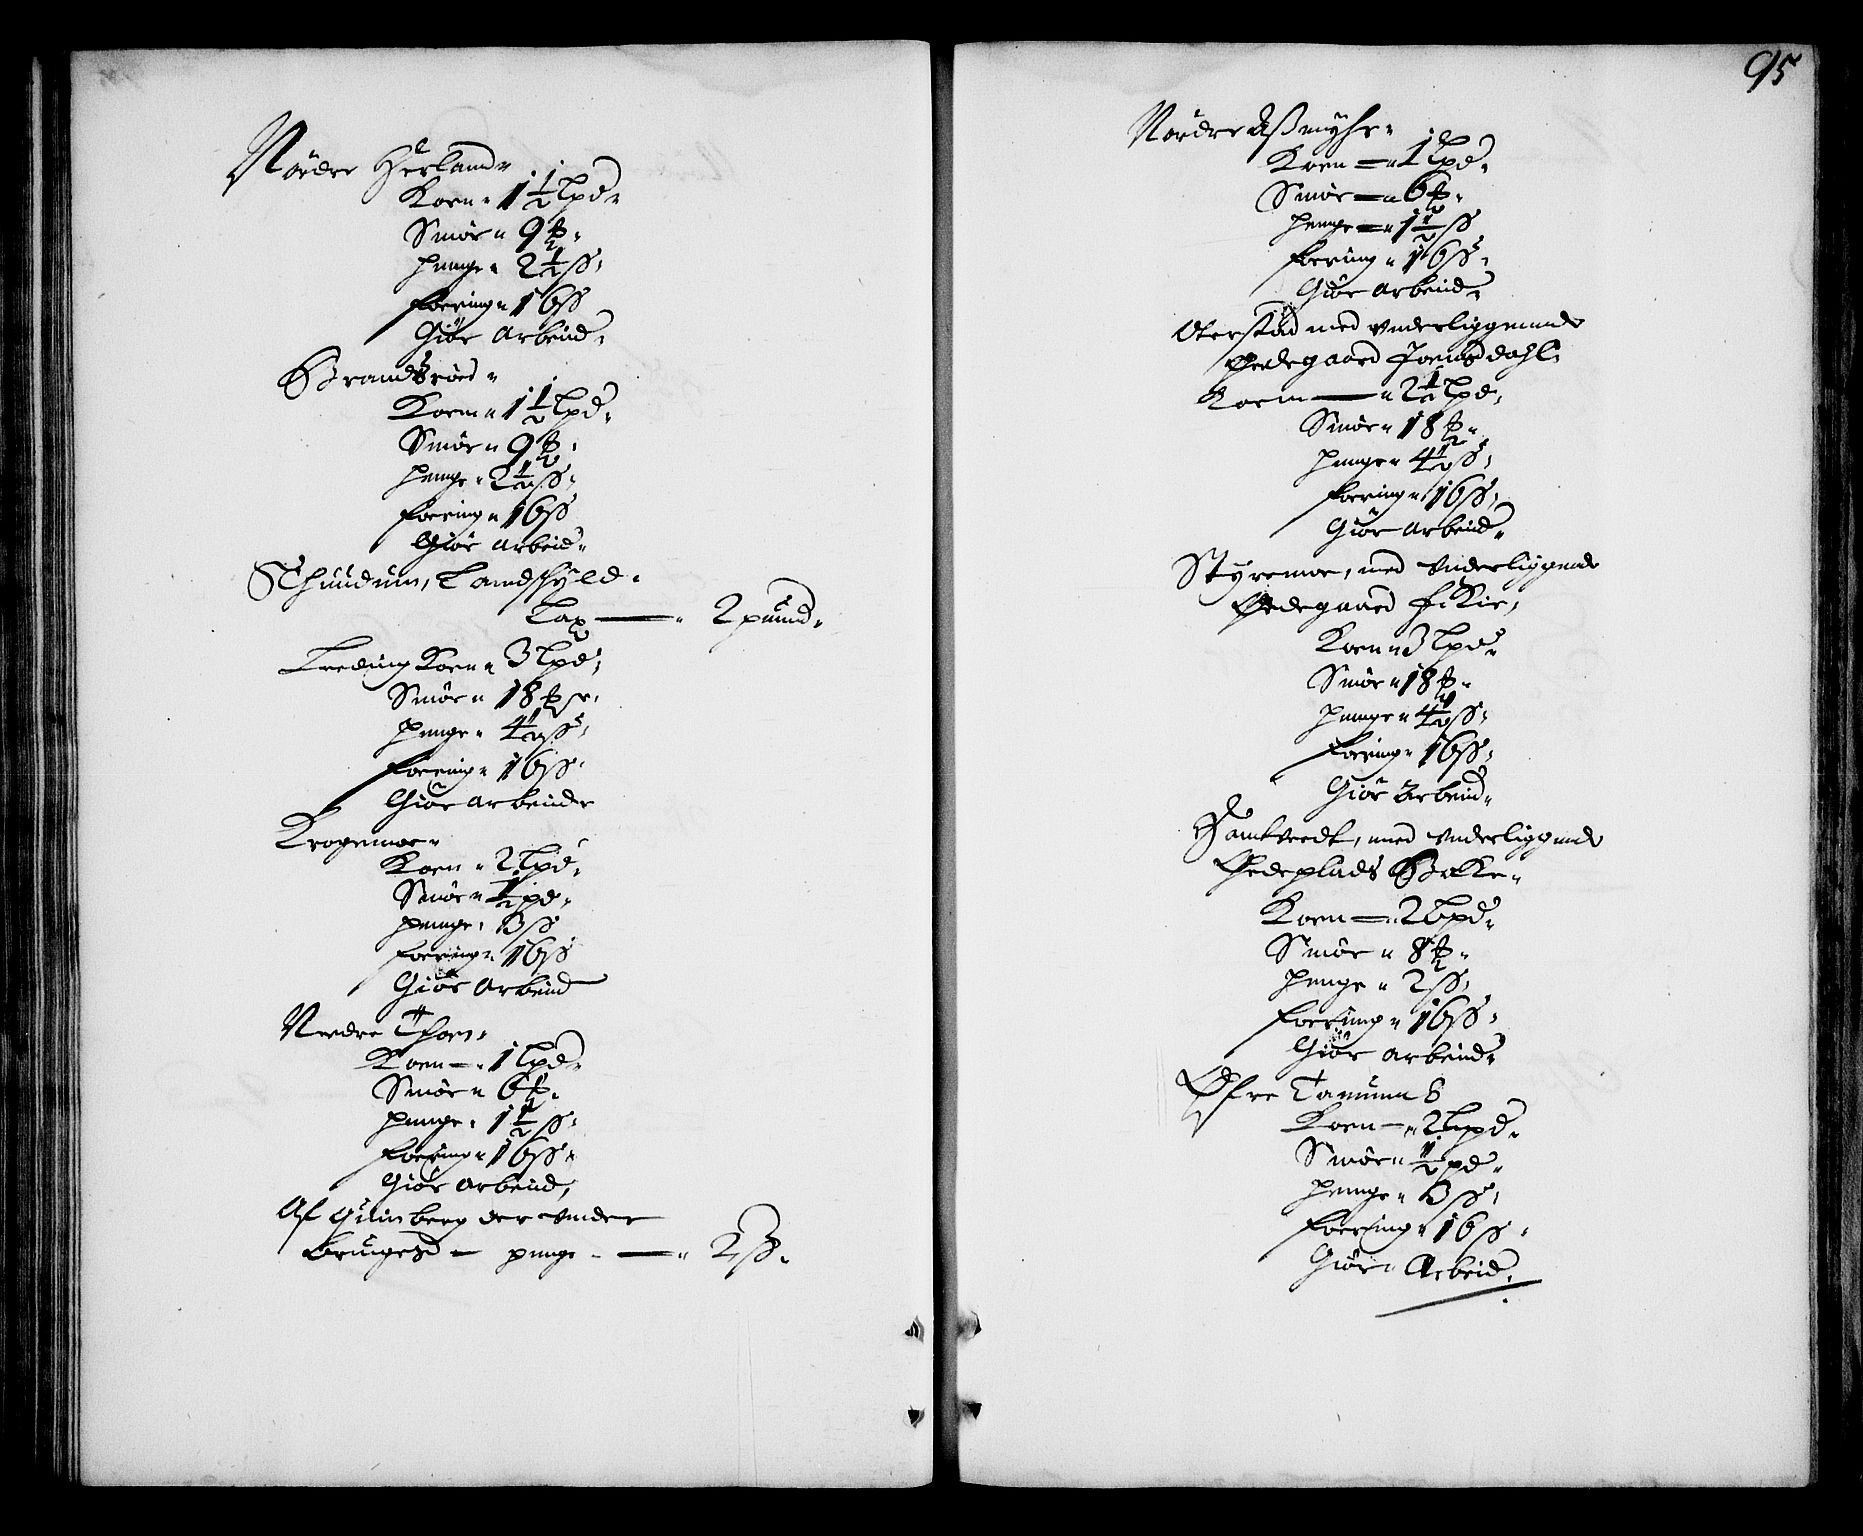 Nördre Herland
Korn 1½ lpd
Smör 9 ℔
penge 2½ ß
foering 16 ß
Giör Arbeid
Brandsröed
Korn 1½ lpd
Smör 9 ℔
penge 2½ ß
foering 16 ß
Giör arbeid
Landskyld
Lax — 2 pund
Leeding Korn 3 lpd
Smör 18 ℔r
penge 4½ ß
foering 16 ß
Giör arbeide
Krogemoe
Korn 2 lpd
Smör ½ pd
penge 3 ß
foering 16 ß
Giör Arbeid
Nerdre Thorn
Korn — 1 lpd
Smör 6 ℔
penge 1½ ß
foering 16 ß
Giör arbeid
Af Guinberg der under
bruges — penge — 2 ß
95
Nördre Aßmyhr
Korn — 1 lpd
Smör — 6 ℔
penge — 1½ ß
foering 16 ß
Giör arbeid
Oterstad med underliggende
Ödegaard Joensdahl
Korn — 2½ lpd
Smör 18 ℔
penge 4½ ß
foering 16 ß
Giör arbeid
Styremoe, med Underliggende
Ödegaard Fikie
Korn 3 lpd
Smör 18 ℔
penge 4½ ß
foering 16 ß
Giör Arbeid
Hamtvedt, med Underliggende
Ödeplads Bakke
Korn — 2 lpd
Smör 8 ℔
penge 2 ß
foering 16 ß
Giör arbeid
Öfre Tanum S
Korn — 2 lpd
Smör ½ pd
penge 3 ß
foering 16 ß
Giör Arbeid